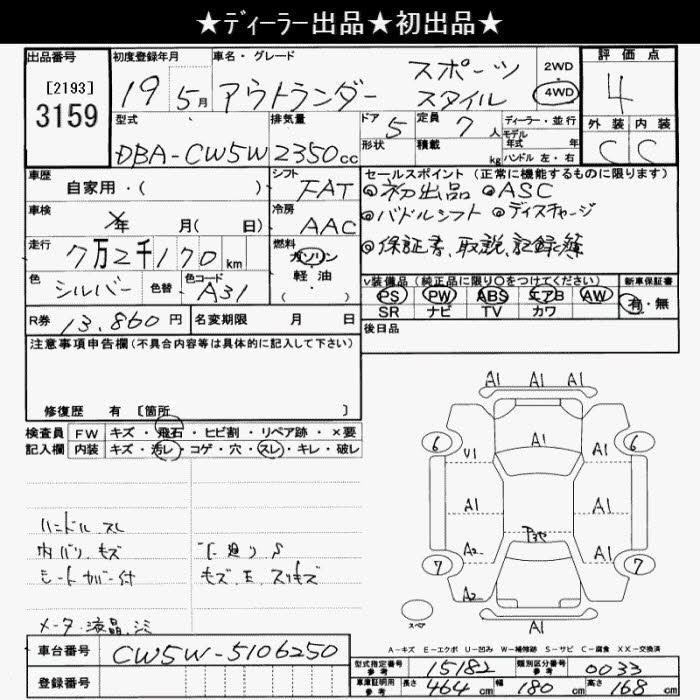 ★ディーラー出品★初出品★
出品番号 初度登録年月 車名・グレード 評価点
[2193]
3159
19 5月 アウトランダー スポーツ スタイル 2WD 4WD 4
型式 排気量 ドア 定員 ディーラー・並行 外装 内装
DBA-CW5W 2350cc 5 7人 モデル年式 年 C C
形状 積載 kg ハンドル 左・右
車歴 シフト セールスポイント(正常に機能するものに限ります)
自家用・( ) FAT ◎初出品 ◎ASC
車検 冷房 ◎パドルシフト ◎ディスチャージ
年 月( 日) AAC
走行 燃料 ◎保証書、取説、記録簿
7万2千170km ガソリン
色 色替 色コード 軽・油
シルバー A31 ・( )
V装備品(純正品に限り○をつけてください) 新車保証書
PS PW ABS エアB AW 有・無
SR ナビ TV カワ
R券 13.860円 名変期限 月 日 後日品
注意事項申告欄(不具合内容等は具体的に記入して下さい)
修復歴 有 [箇所 ]
検査員 FW キズ・飛石・ヒビ割・リペア跡・×要
記入欄 内装 キズ・汚レ・コゲ・穴・スレ・キレ・破レ
ハンドル スレ
内バリ、キズ
シートカバー付
メータ液晶
A1 A1 A1
6 A1 6
U1
A1 A1 A1
A2 A1
7 7
A2
スペア A1
A-キズ E-エクボ U-凹み W-補修跡 S-サビ C-腐食 XX-交換済
車台番号 CW5W-5106250
型式指定番号 参考 15182 類別区分番号 参考 0033
登録番号
車庫証明用 参考 長さ 464cm 幅 180cm 高さ 168cm